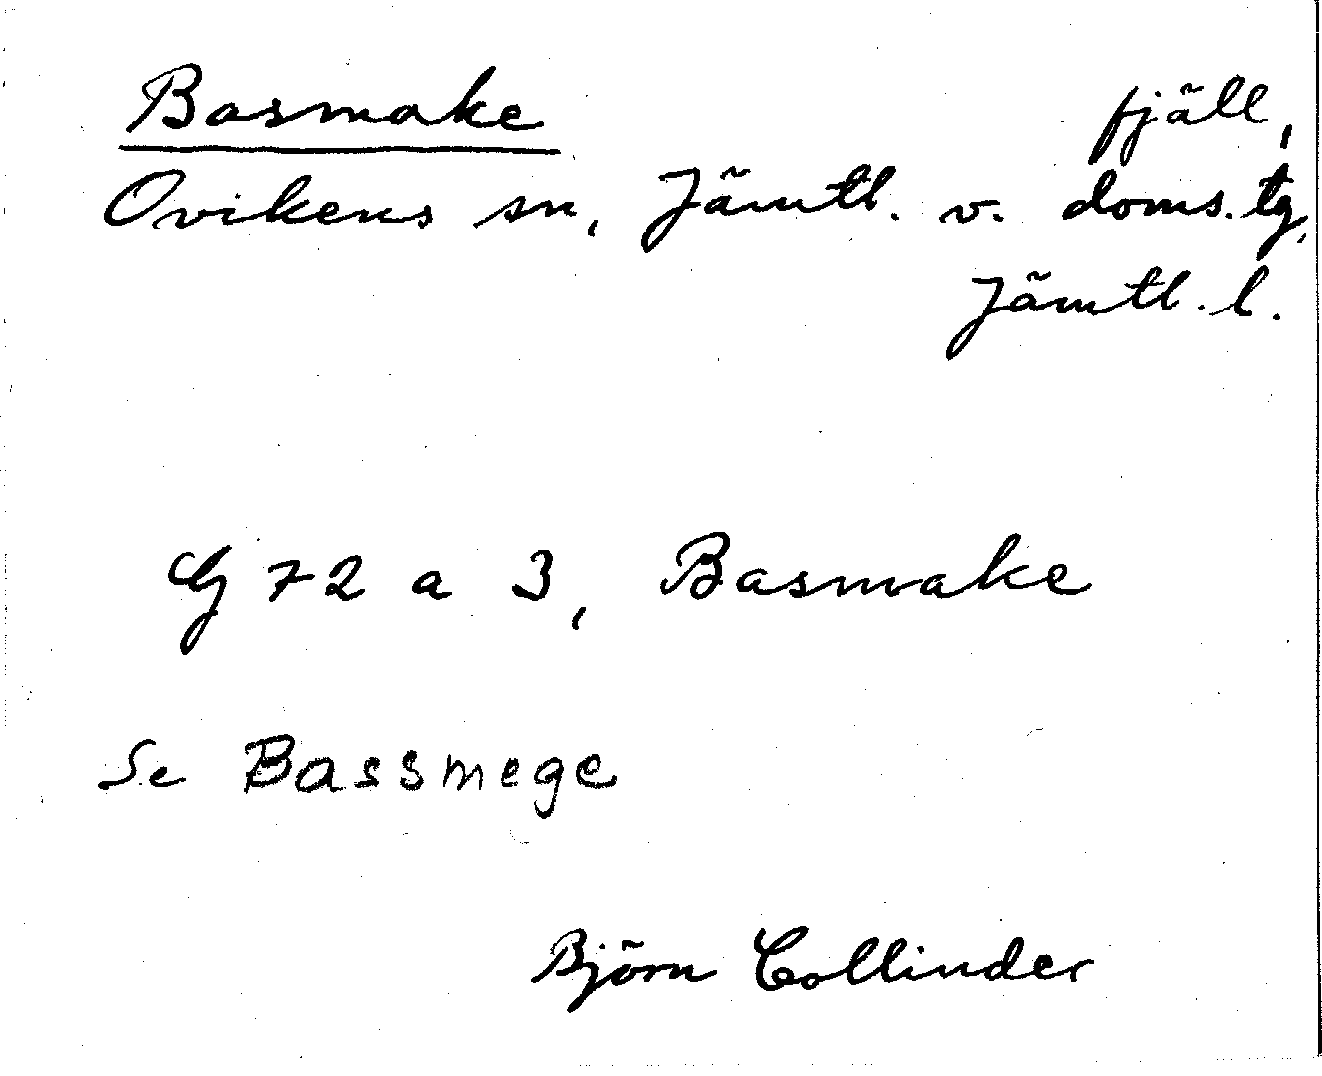 Basmake fjäll,
Ovikens sn, Jämtl. v. doms. tg,
Jämtl. l.
G 72 a 3, Basmake
Se Bassmege
Björn Collinder